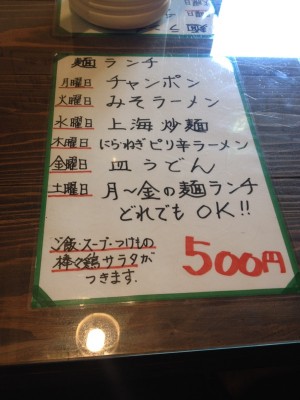 麺ランチ
月曜日 チャンポン
火曜日 みそラーメン
水曜日 上海炒麺
木曜日 にらねぎピリ辛ラーメン
金曜日 皿うどん
土曜日 月〜金の麺ランチ
どれでもOK!!
ご飯・スープ・つけもの
棒々鶏サラダが
つきます.
500円